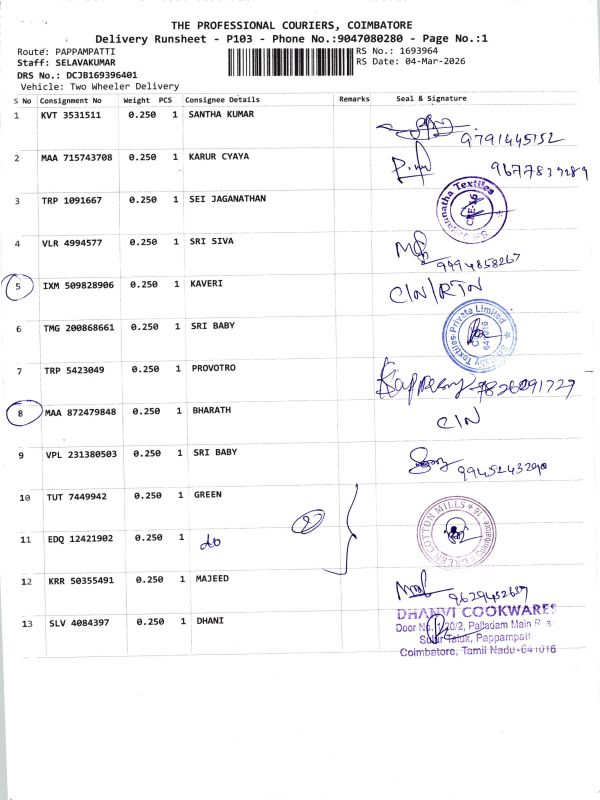 THE PROFESSIONAL COURIERS, COIMBATORE
Delivery Runsheet - P103 - Phone No.:9047080280 - Page No.:1
Route: PAPPAMPATTI RS No.: 1693964
Staff: SELAVAKUMAR RS Date: 04-Mar-2026
DRS No.: DCJB169396401
Vehicle: Two Wheeler Delivery
S No Consignment No Weight PCS Consignee Details Remarks Seal & Signature
1 KVT 3531511 0.250 1 SANTHA KUMAR 9791445152
2 MAA 715743708 0.250 1 KARUR CYAYA
3 TRP 1091667 0.250 1 SEI JAGANATHAN
4 VLR 4994577 0.250 1 SRI SIVA 9994858267
5 IXM 509828906 0.250 1 KAVERI C/N/RTN
6 TMG 200868661 0.250 1 SRI BABY
7 TRP 5423049 0.250 1 PROVOTRO
8 MAA 872479848 0.250 1 BHARATH C/N
9 VPL 231380503 0.250 1 SRI BABY 9945243290
10 TUT 7449942 0.250 1 GREEN
2
GREEN COTTON MILLS
11 EDQ 12421902 0.250 1 do
12 KRR 50355491 0.250 1 MAJEED
13 SLV 4084397 0.250 1 DHANI
DHANVI COOKWARES
Palladam Main
Sulur Taluk, Pappampatti
Coimbatore, Tamil Nadu-641016